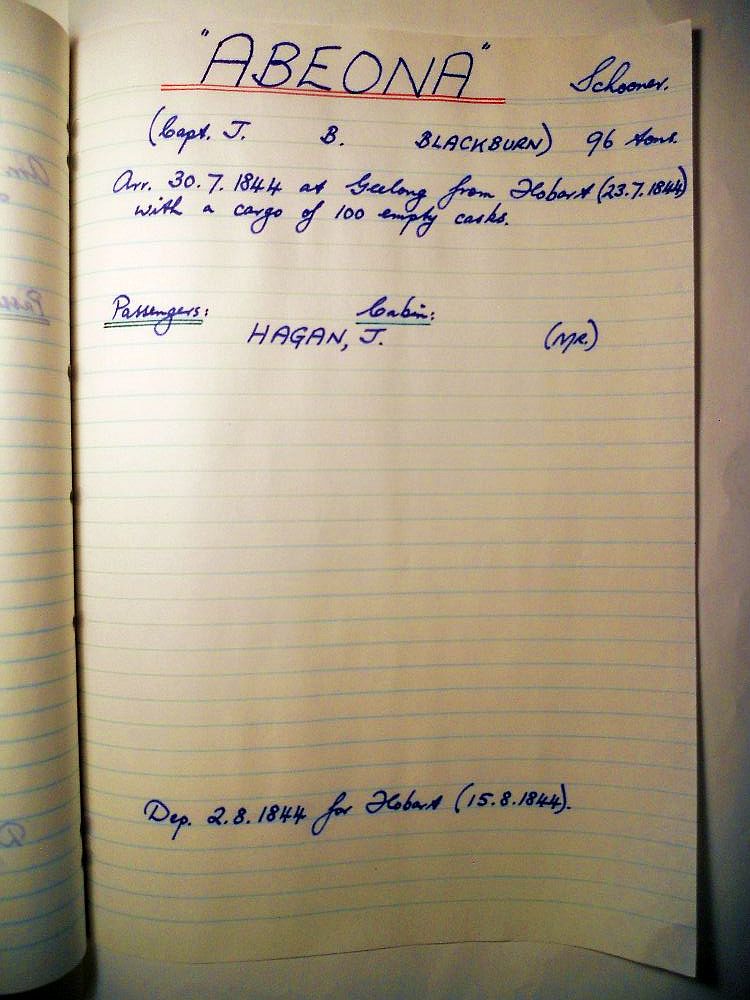 "ABEONA" Schooner.
(Capt. J. B. BLACKBURN) 96 tons.
Arr. 30.7.1844 at Geelong from Hobart (23.7.1844)
with a cargo of 100 empty casks.
Passengers: Cabin:
HAGAN, J. (MR.)
Dep. 2.8.1844 for Hobart (15.8.1844).